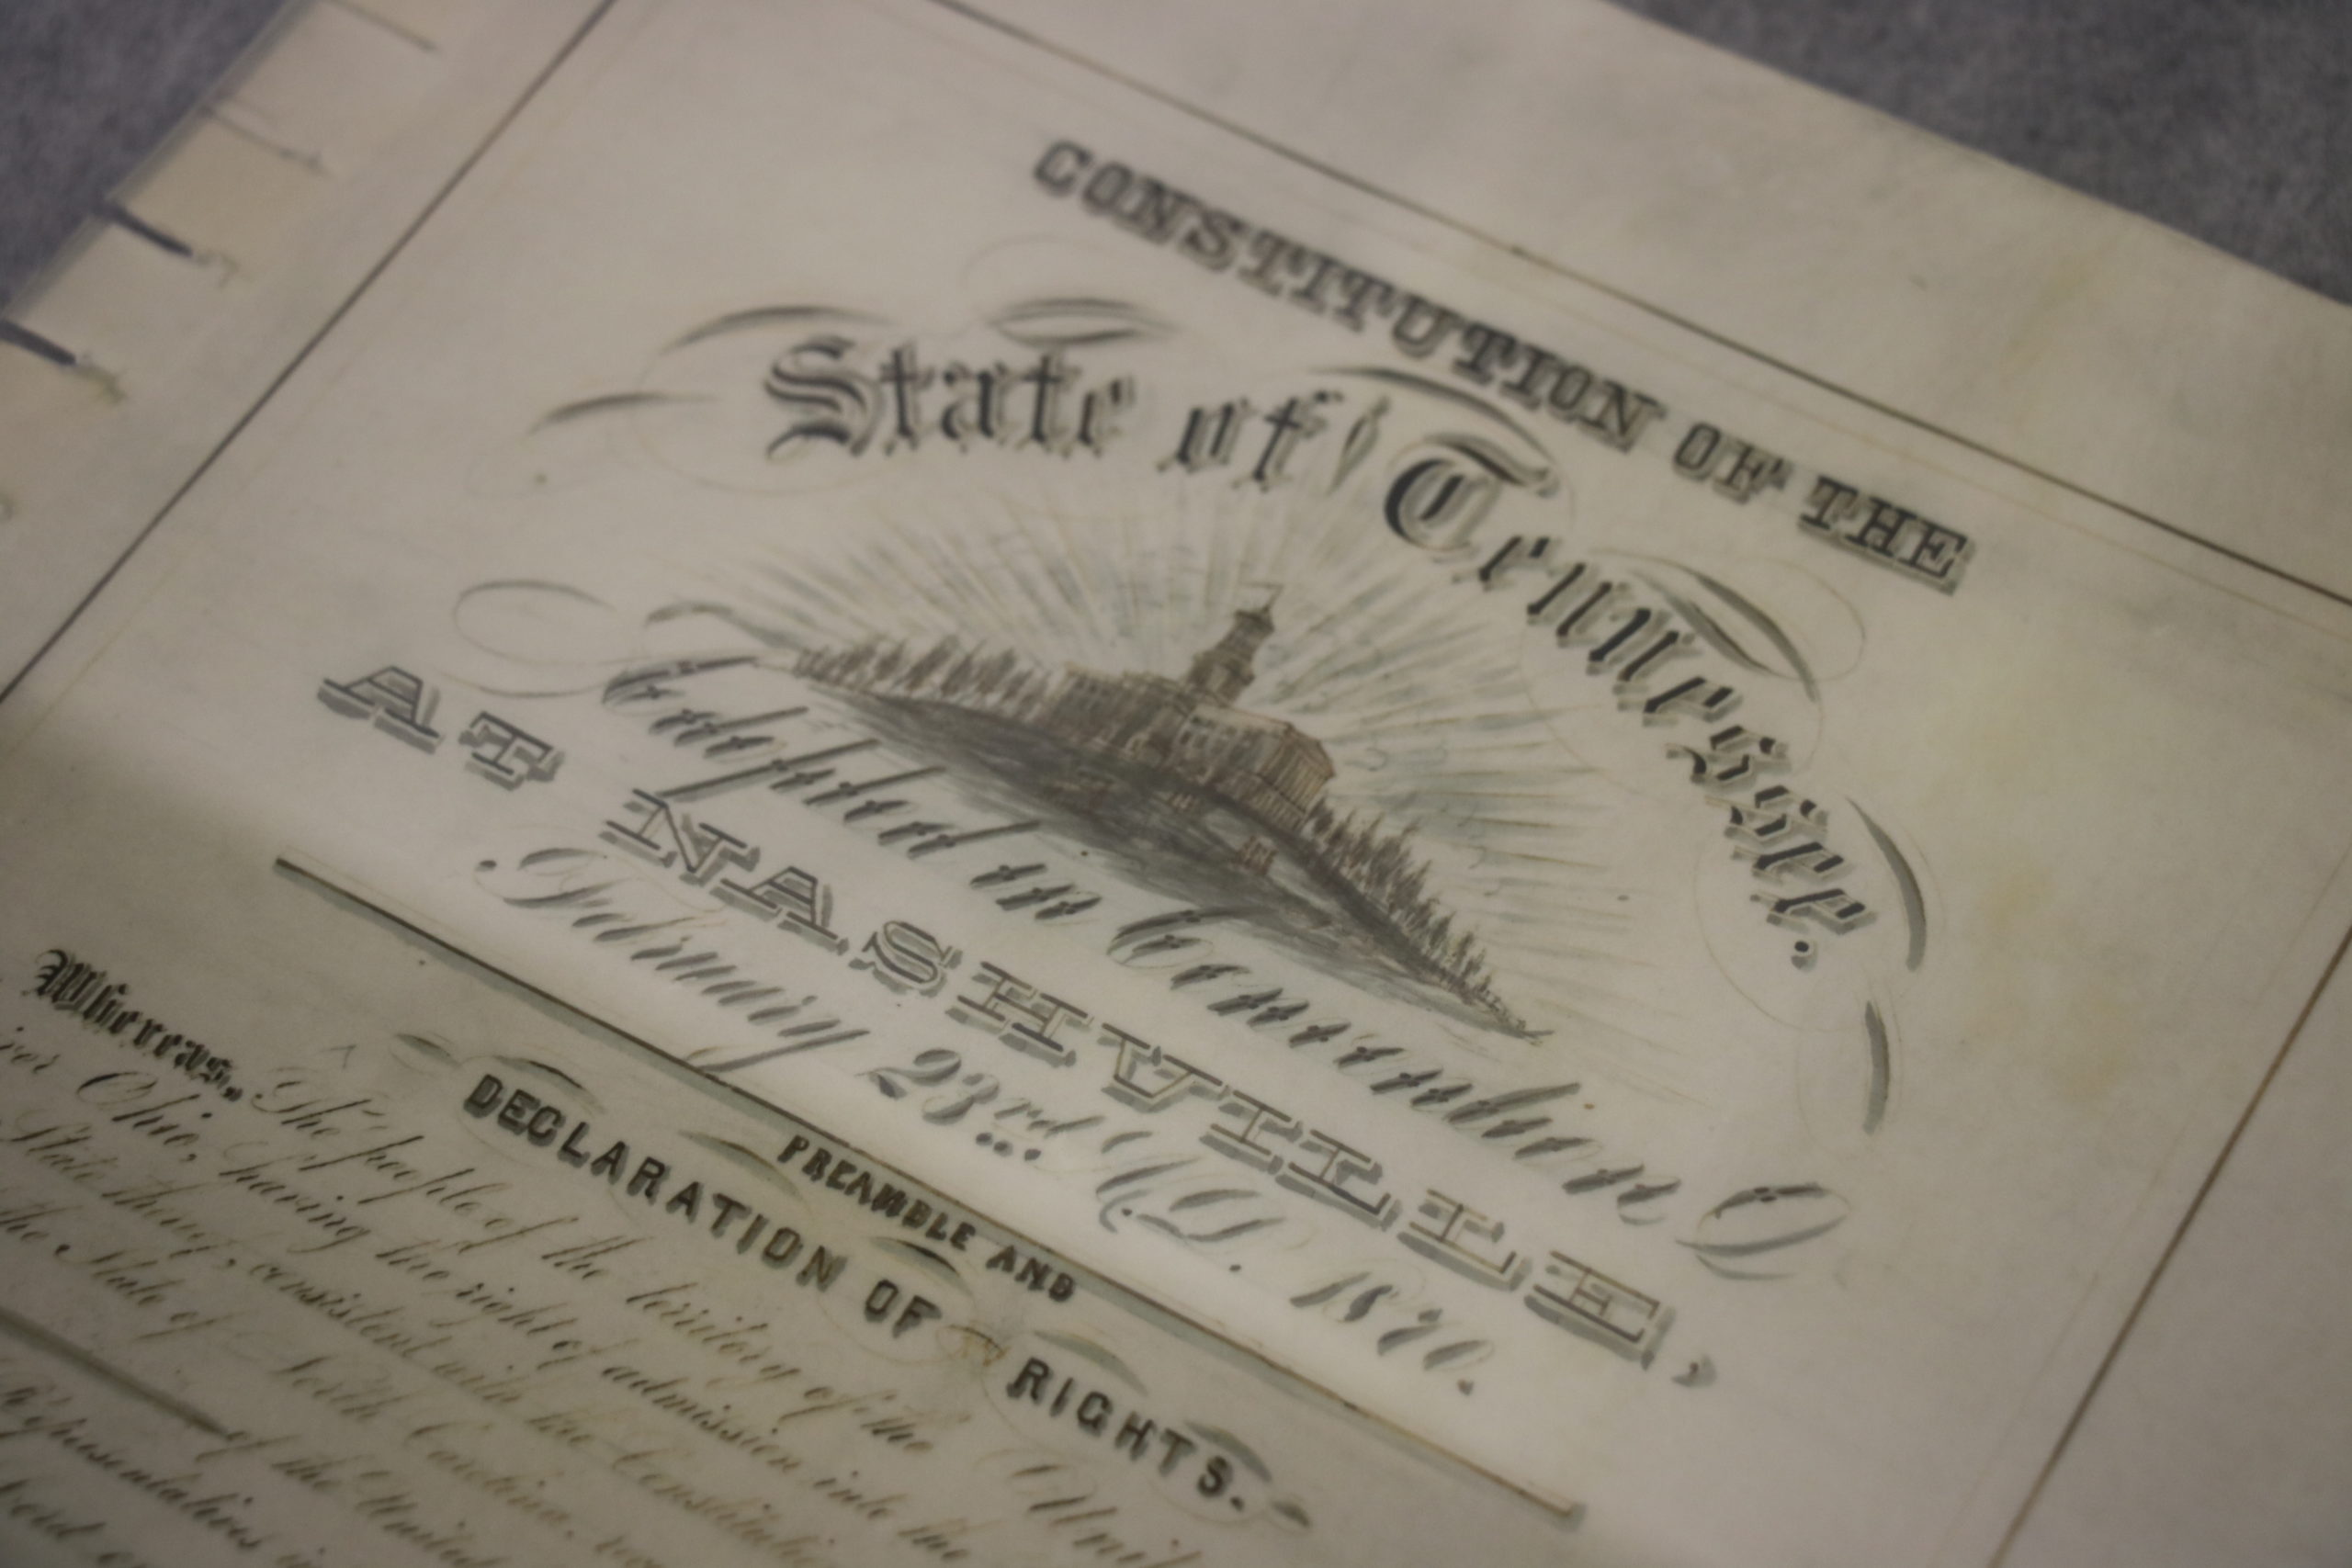 CONSTITUTION OF THE
State of Tennessee.
Adopted in Convention
AT NASHVILLE,
February 23rd A.D. 1870.
PREAMBLE AND
DECLARATION OF RIGHTS.
Whereas, The people of the territory of the
Ohio, having the right of admission into the
State consistent with the
the State of North Carolina,
of the United